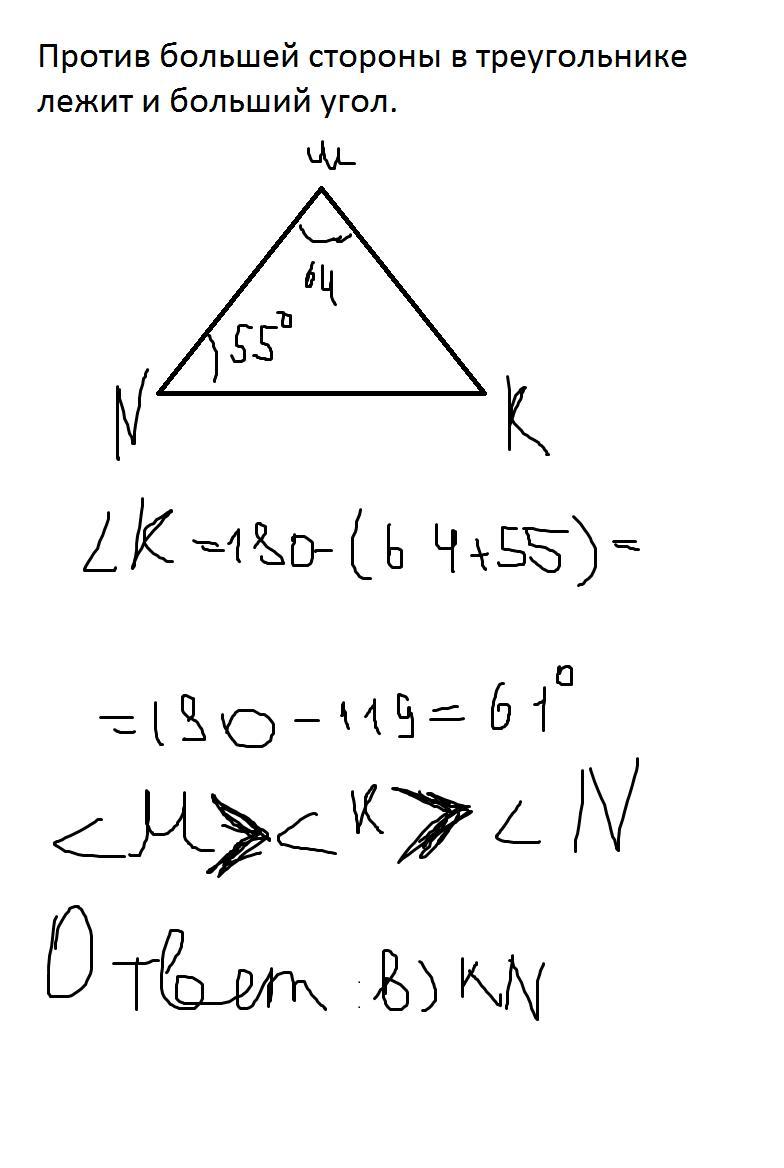 Против большей стороны в треугольнике
лежит и больший угол.
M
64
55°
N
K
∠K =180-(64+55)=
=180-119=61°
∠M>∠K>∠N
Ответ: в) KN